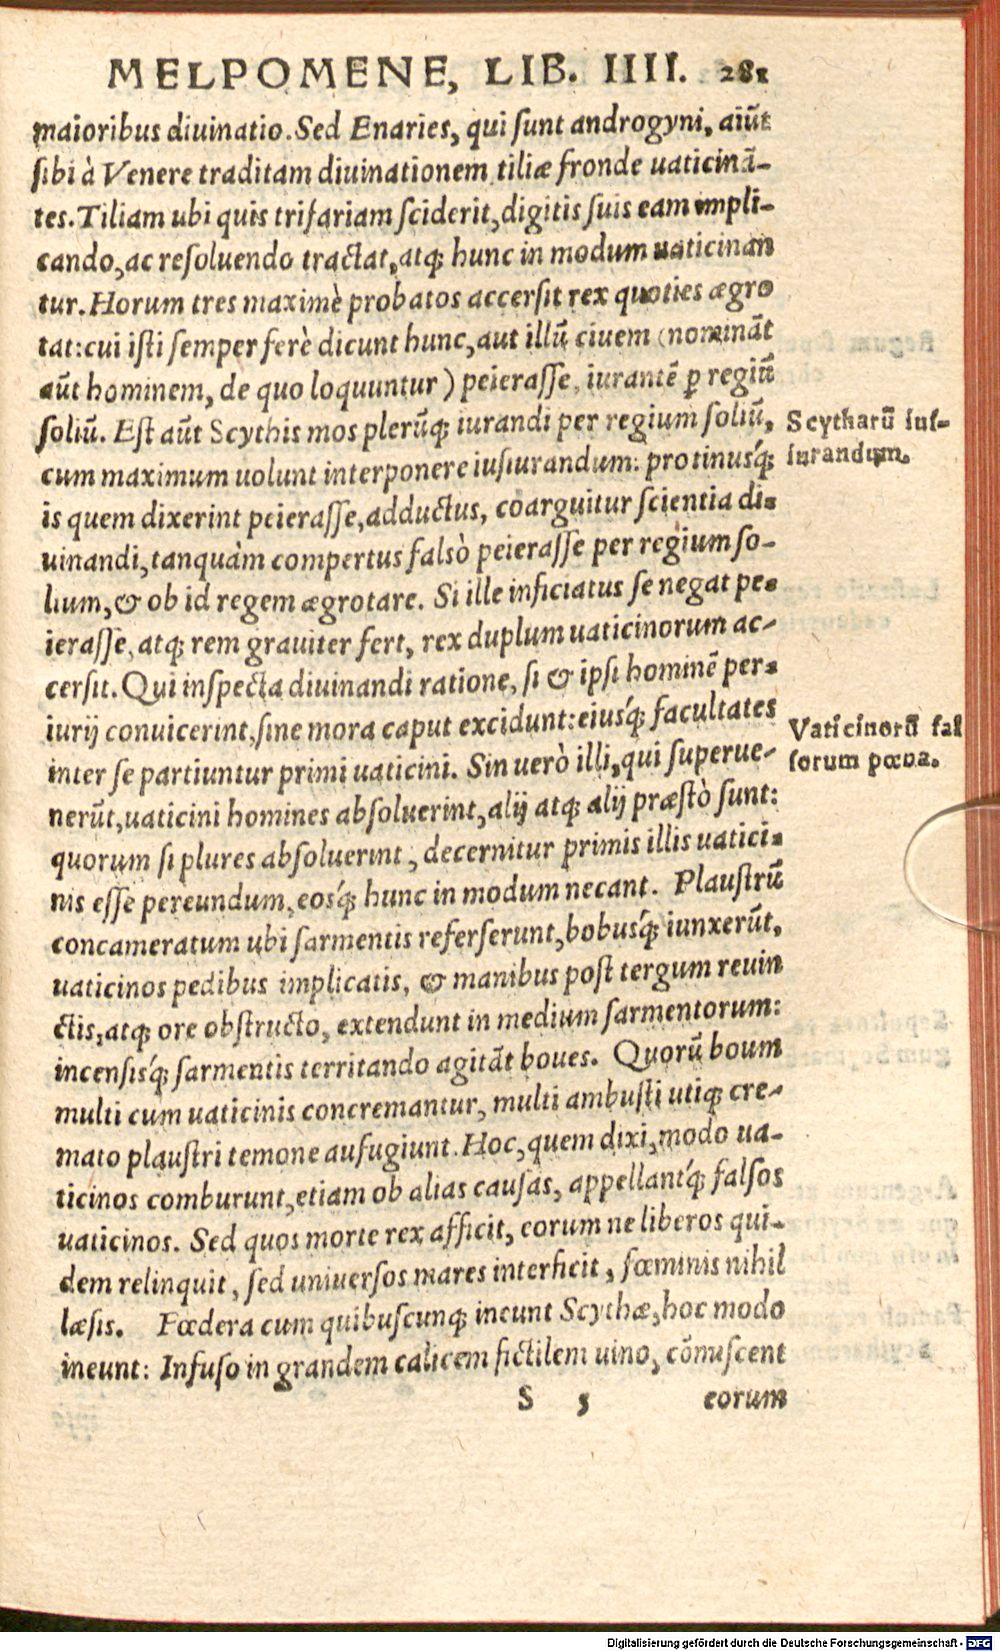 MELPOMENE, LIB. IIII. 281
maioribus diuinatio. Sed Enaries, qui sunt androgyni, aiũt
sibi à Venere traditam diuinationem tiliæ fronde uaticinã-
tes. Tiliam ubi quis trifariam sciderit, digitis suis eam impli-
cando, ac resoluendo tractat, atq; hunc in modum uaticinan
tur. Horum tres maximè probatos accersit rex quoties ægro
tat: cui isti semper ferè dicunt hunc, aut illũ ciuem (nominãt
aũt hominem, de quo loquuntur) peierasse, iurantẽ ꝑ regiũ
soliũ. Est aũt Scythis mos plerũq; iurandi per regium soliũ,
Scytharũ ius-
cum maximum uolunt interponere iusiurandum: protinusq́;
iurandum.
is quem dixerint peierasse, adductus, coarguitur scientia di-
uinandi, tanquàm compertus falsò peierasse per regium so-
lium, & ob id regem ægrotare. Si ille inficiatus se negat pe-
ierasse, atq; rem grauiter fert, rex duplum uaticinorum ac-
cersit. Qui inspecta diuinandi ratione, si & ipsi hominẽ per-
iurij conuicerint, sine mora caput excidunt: eiusq́; facultates
Vaticinorũ fal
inter se partiuntur primi uaticini. Sin uerò illi, qui superue-
sorum pœna.
nerũt, uaticini homines absoluerint, alij atq; alij præstò sunt:
quorum si plures absoluerint, decernitur primis illis uatici-
nis esse pereundum, eosq́; hunc in modum necant. Plaustrũ
concameratum ubi sarmentis referserunt, bobusq́; iunxerũt,
uaticinos pedibus implicatis, & manibus post tergum reuin
ctis, atq; ore obstructo, extendunt in medium sarmentorum:
incensisq́; sarmentis territando agitãt boues. Quorũ boum
multi cum uaticinis concremantur, multi ambusti utiq; cre-
mato plaustri temone aufugiunt. Hoc, quem dixi, modo ua-
ticinos comburunt, etiam ob alias causas, appellantq́; falsos
uaticinos. Sed quos morte rex afficit, eorum ne liberos qui-
dem relinquit, sed uniuersos mares interficit, fœminis nihil
læsis. Fœdera cum quibuscunq; ineunt Scythæ, hoc modo
ineunt: Infuso in grandem calicem fictilem uino, cõmiscent
S 5 eorum
Digitalisierung gefördert durch die Deutsche Forschungsgemeinschaft - DFG